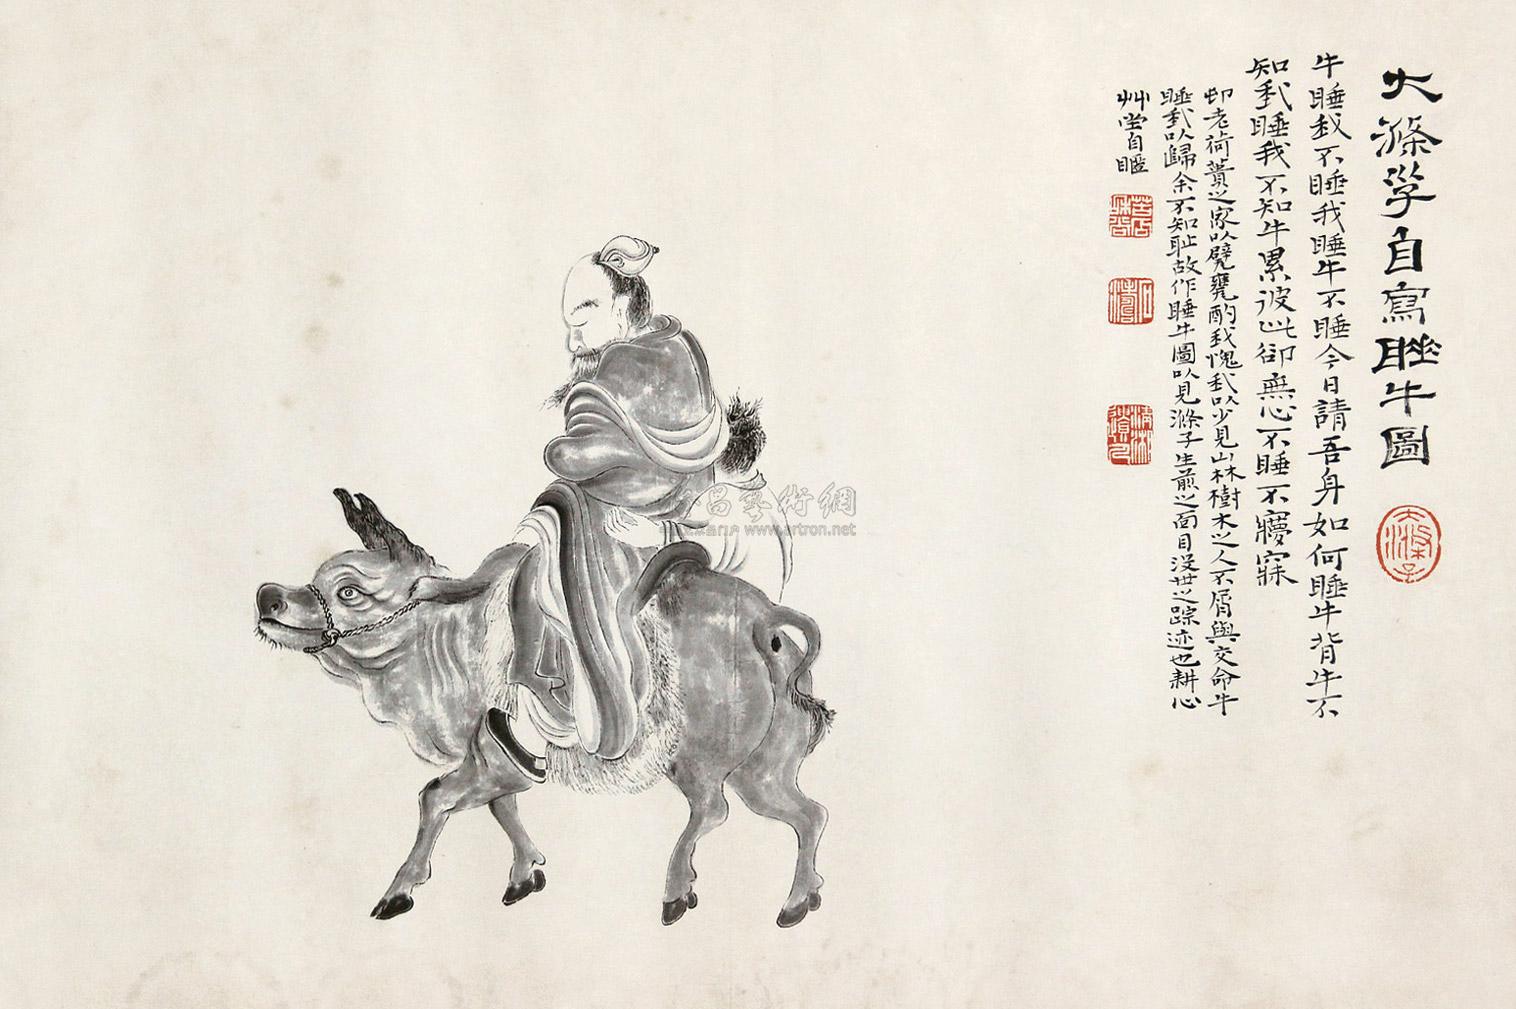 大滌子自寫睡牛圖
牛睡我不睡我睡牛不睡今日請吾身如何睡牛背牛不
知我睡我不知牛累彼此卻無心不睡不寱寐
卬老荷蕢之家以甓甕酌我愧我以少見山林樹木之人不屑與交命牛
睡我以歸余不知恥故作睡牛圖以見滌子生前之面目沒世之踪迹也耕心
艸堂自
昌藝術網
www.artron.net